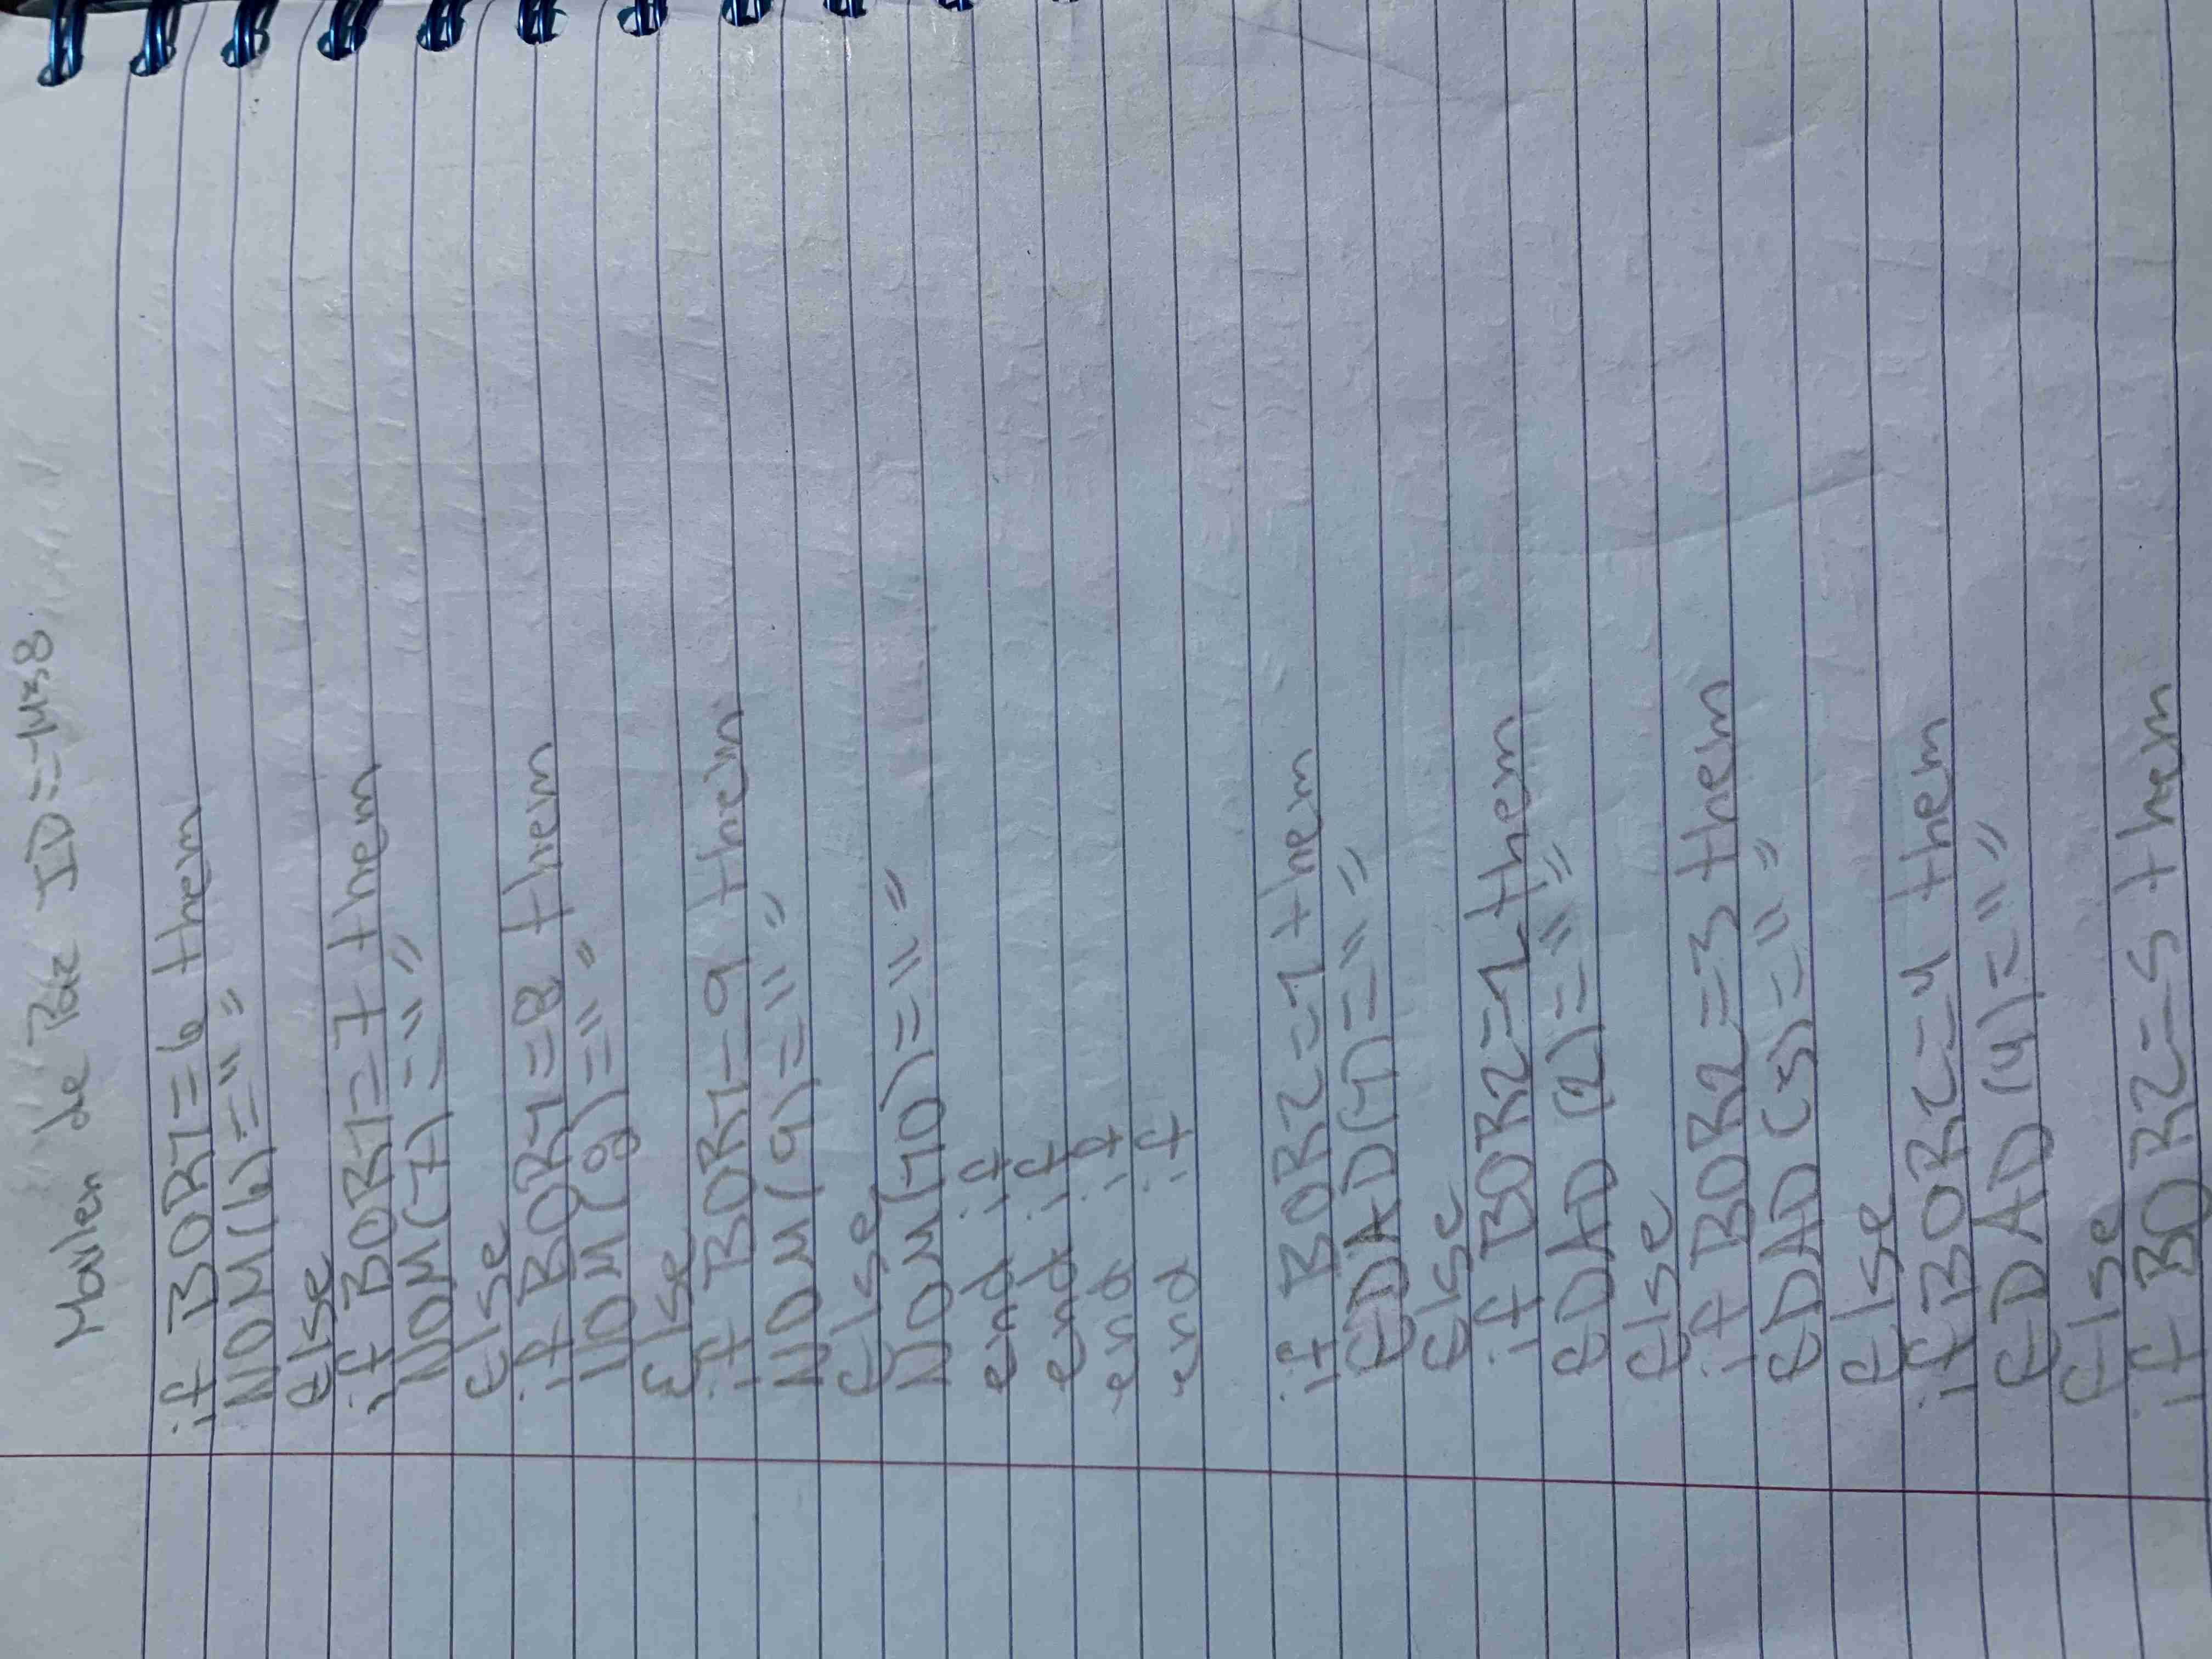 Marlen de Paz ID=1438
if BOR1=6 them
NOM(6)=" "
else
if BOR1=7 them
NOM(7)=" "
else
if BOR1=8 them
NOM(8)=" "
else
if BOR1=9 them
NOM(9)=" "
else
NOM(10)=" "
end if
end if
end if
end if
if BOR2=1 them
EDAD(1)=" "
else
if BOR2=2 them
EDAD(2)=" "
else
if BOR2=3 them
EDAD(3)=" "
else
if BOR2=4 them
EDAD(4)=" "
else
if BOR2=5 them